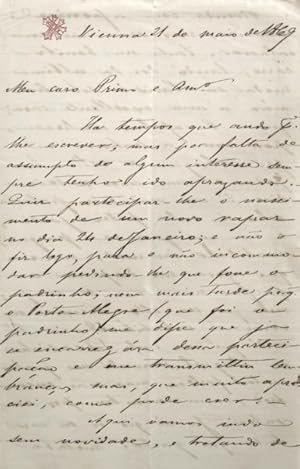 Vienna 21 de maio de 1869
Meu caro Primo e Amº
Ha tempos que ando p.ª
lhe escrever; mas por falta de
assumpto de algum interesse sem-
pre tenho ido aprazando.
Quiz participar-lhe o nasci-
mento de um novo rapaz
no dia 24 de Janeiro; e não o
fiz logo, para o não incommo-
dar pedindo-lhe que fosse o
padrinho; nem mais tarde porq
o Porto-Alegre (que foi o
padrinho) me disse que já
se encarregára dessa partici-
pação e me transmittiu lem-
branças, mas, que muito apre-
ciei, como pode crer.
Aqui vamos indo
sem novidade, e tratando de